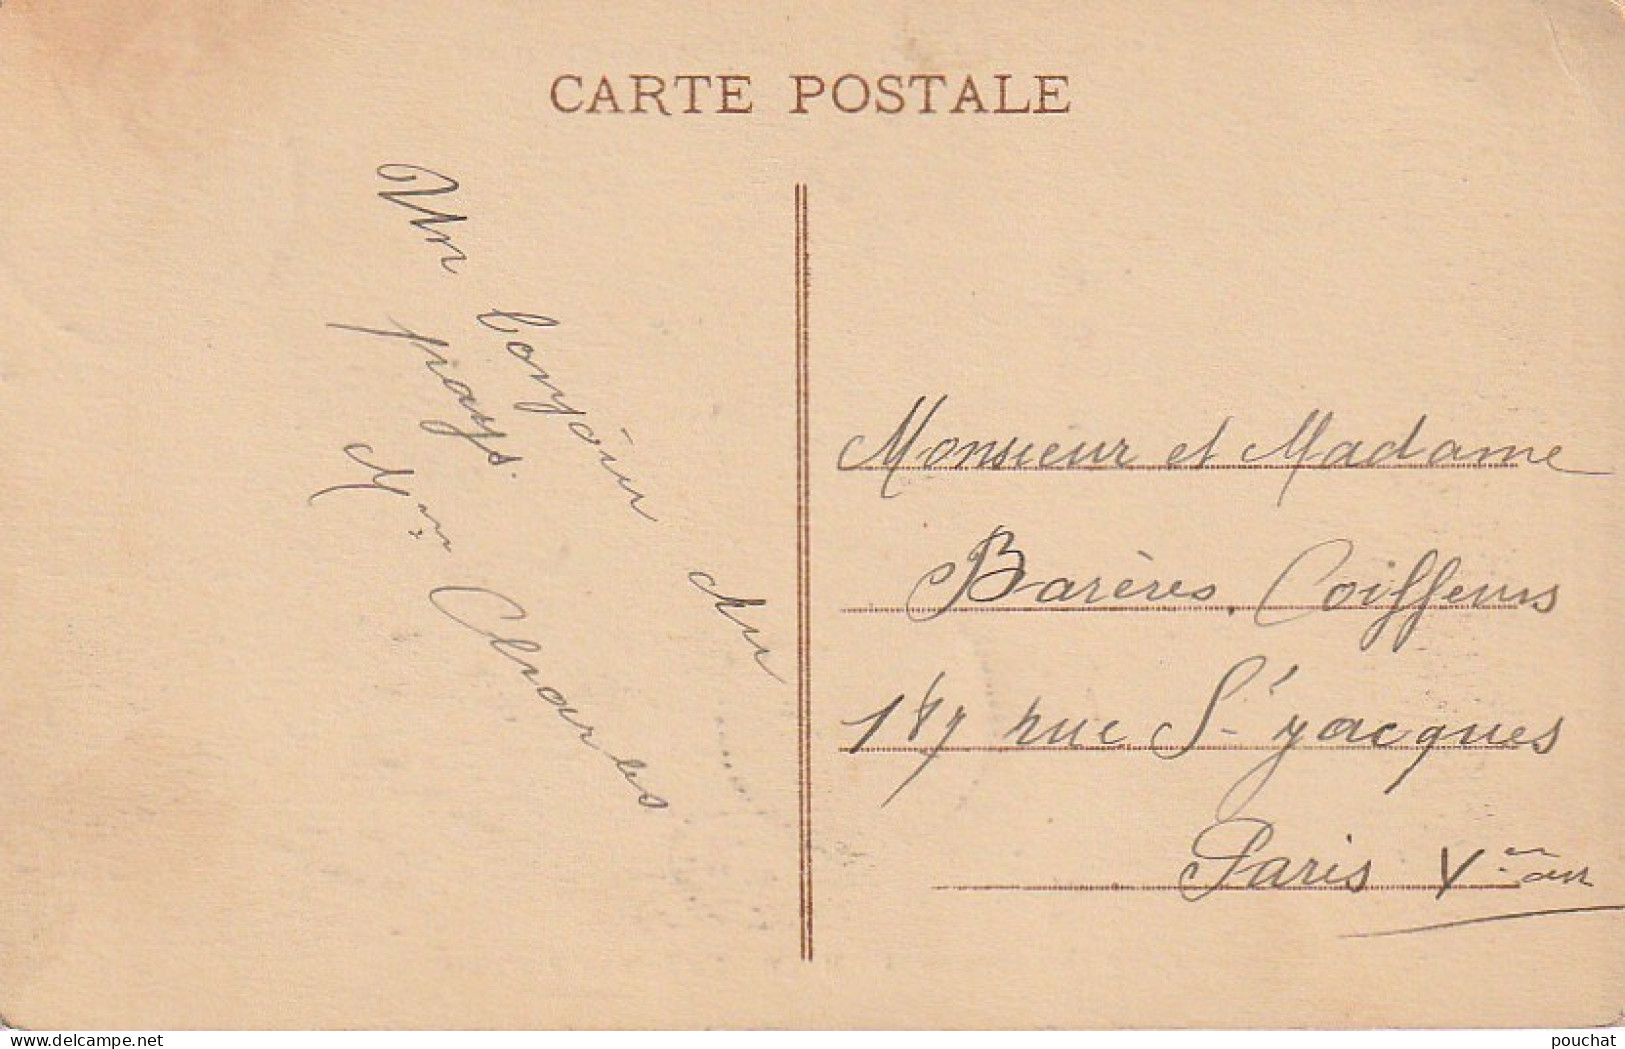 CARTE POSTALE
Un bonjour du
pays.
Mme Charles
Monsieur et Madame
Barères. Coiffeurs
187 rue St Jacques
Paris Vème arr
delcampe.net
pouchat